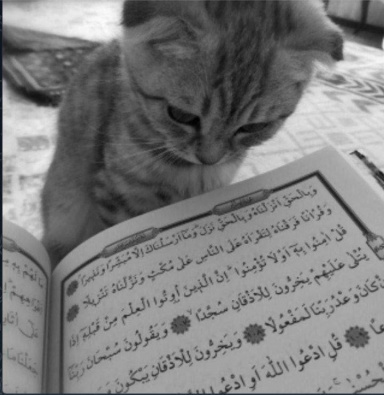 وَبِالْحَقِّ أَنْزَلْنَاهُ وَبِالْحَقِّ نَزَلَ وَمَا أَرْسَلْنَاكَ إِلَّا مُبَشِّرًا وَنَذِيرًا
وَقُرْآنًا فَرَقْنَاهُ لِتَقْرَأَهُ عَلَى النَّاسِ عَلَى مُكْثٍ وَنَزَّلْنَاهُ تَنْزِيلًا
قُلْ آمِنُوا بِهِ أَوْ لَا تُؤْمِنُوا إِنَّ الَّذِينَ أُوتُوا الْعِلْمَ مِنْ قَبْلِهِ إِذَا
يُتْلَى عَلَيْهِمْ يَخِرُّونَ لِلْأَذْقَانِ سُجَّدًا وَيَقُولُونَ سُبْحَانَ رَبِّنَا
كَانَ وَعْدُ رَبِّنَا لَمَفْعُولًا وَيَخِرُّونَ لِلْأَذْقَانِ يَبْكُونَ
قُلِ ادْعُوا اللَّهَ أَوِ ادْعُوا